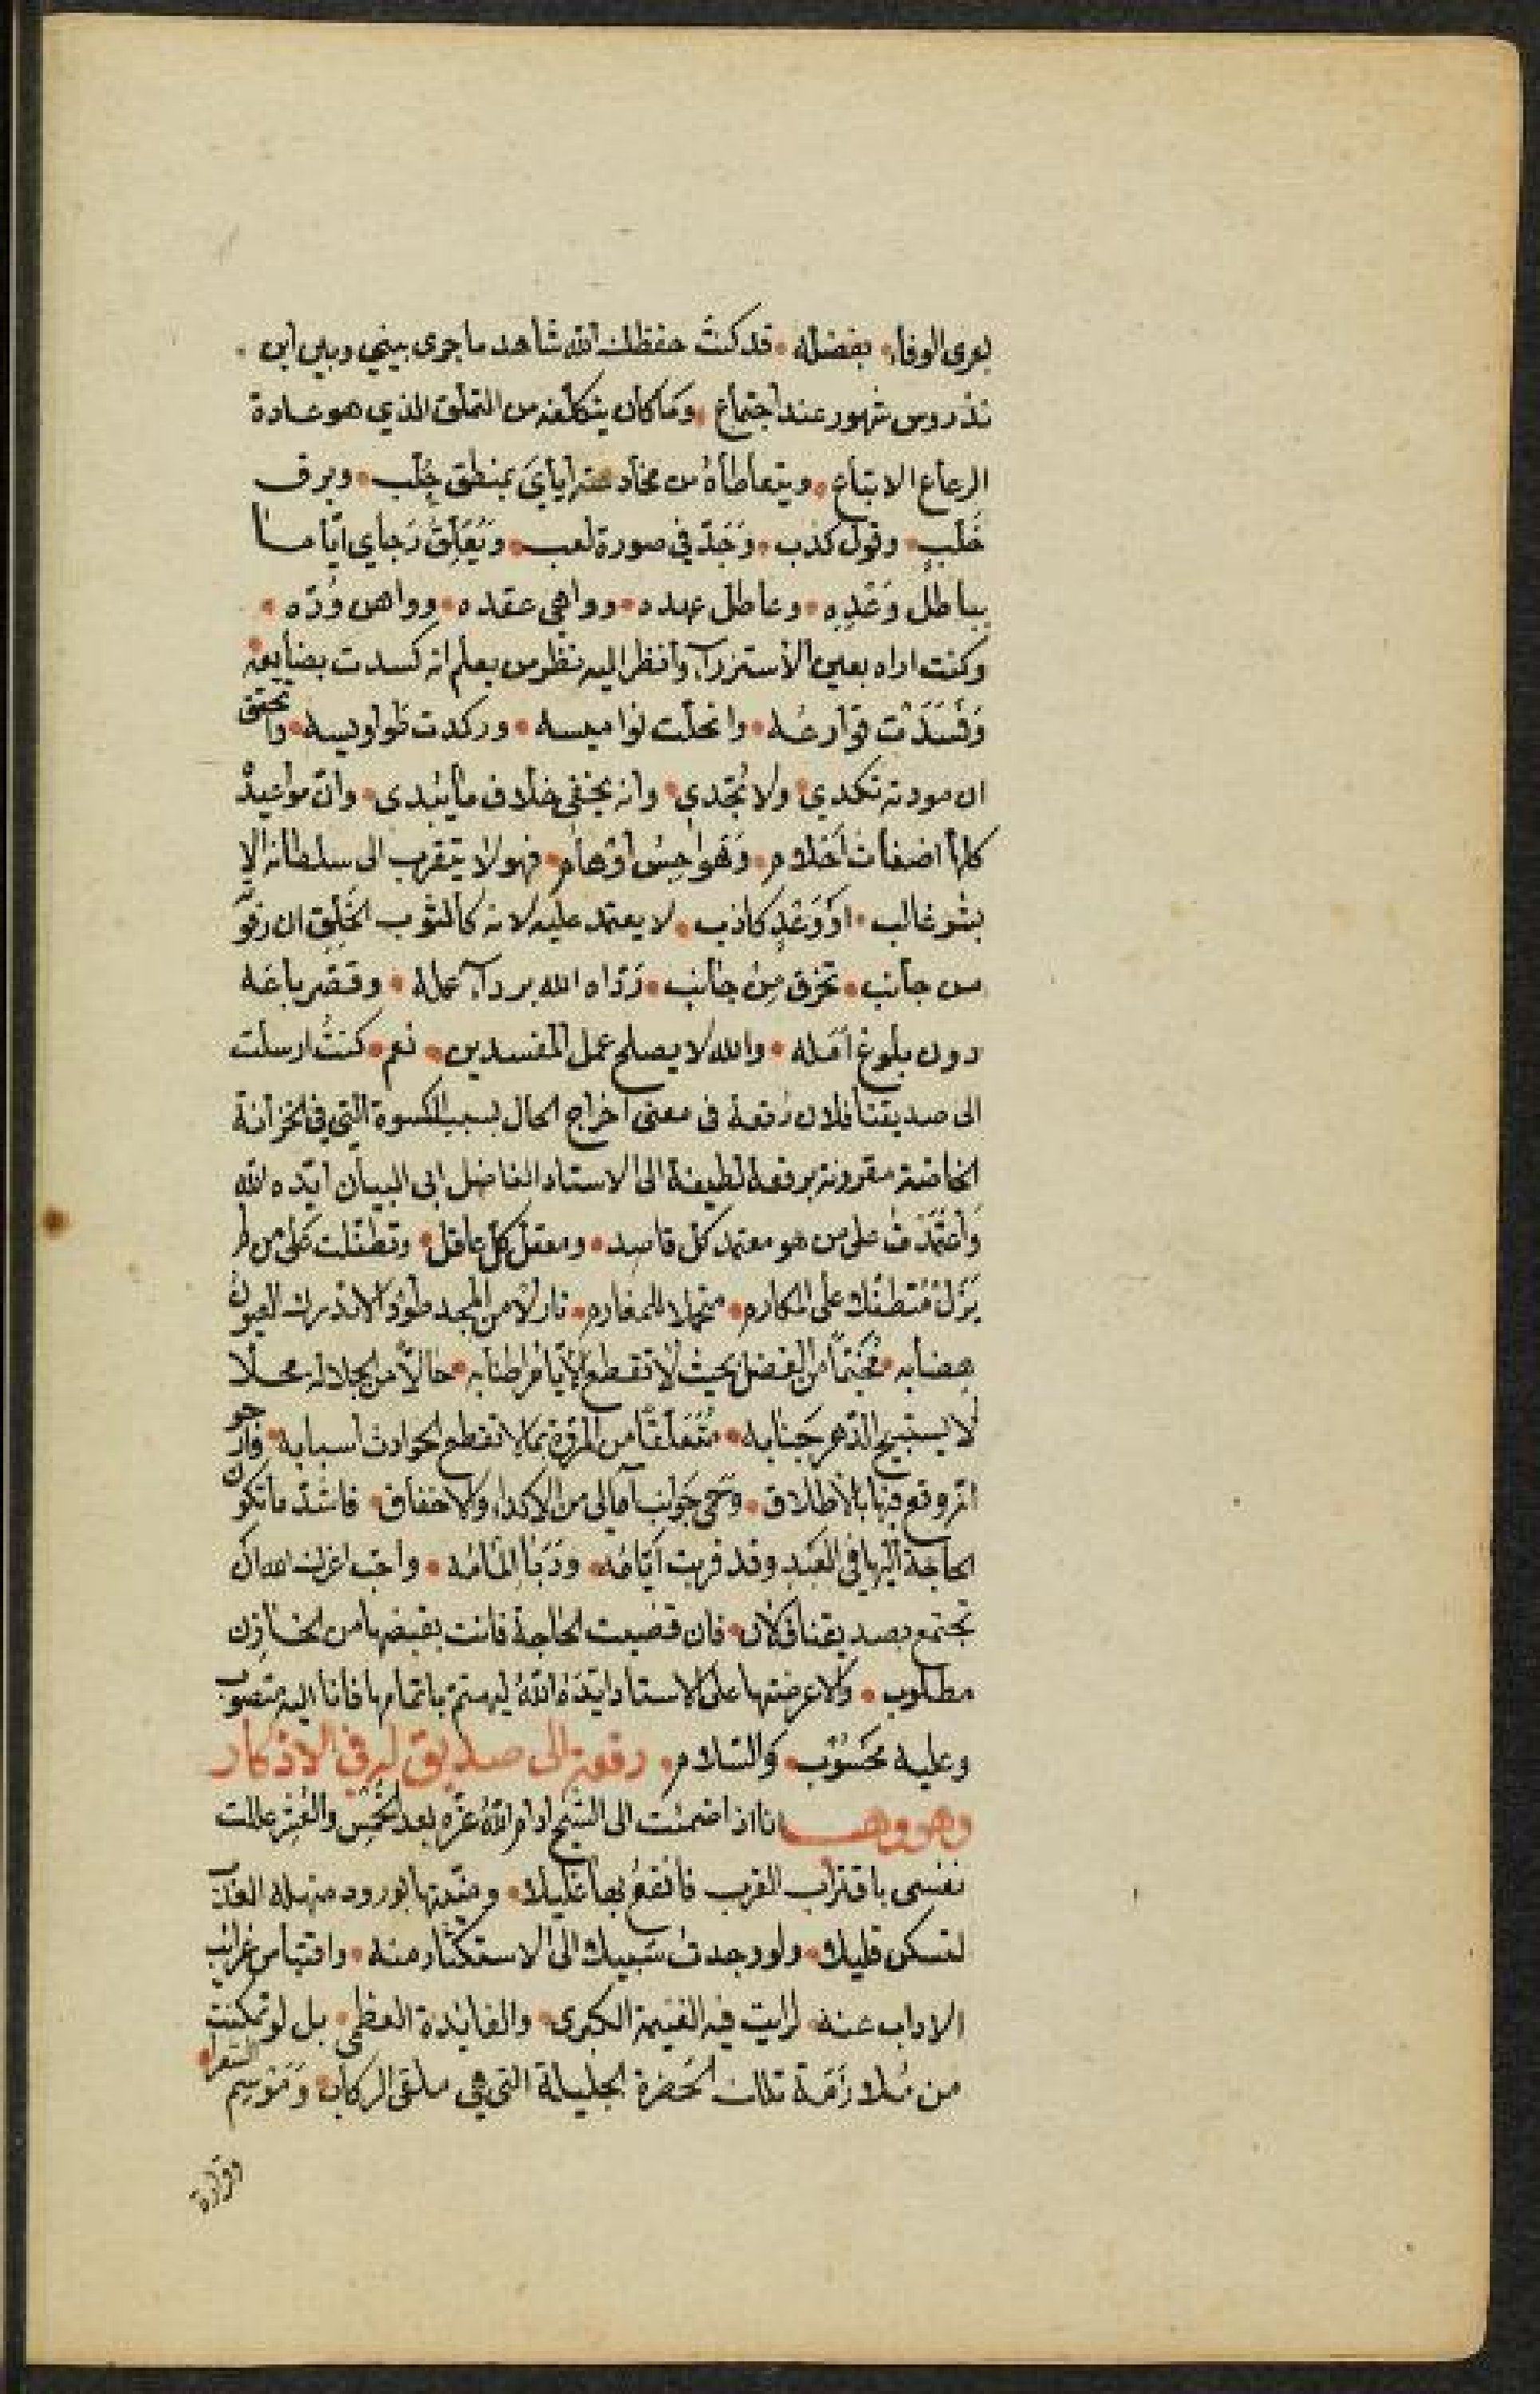 لعرى الوفاء بفضله قد كنتُ حفظك الله شاهد ما جرى بيني وبين ابن
تذروس شهور عند اجتماع وما كان يتكلفه من التملق الذي هو عادة
الرعاع الاتباع ويتعاطاه من مخادعته اياي بمنطق خِلْب وبرق
خُلّب وقول كذب وَجَدّ في صورة لعب وَتَعَلّق رَجاي اياما
بباطل وَعْدِه وعاطل عهده وواهي عقده وواهن وُدّه
وكنت اراه بعين الاستزراء وانظر اليه نظر من يعلم انه كسدت بضايعه
وَفَسَدَتْ قوارعُه وانحلّت نواميسه وركدت طواويسه واتحقق
ان مودته تكدي ولا تُجْدي وانه يخفي خلاف ما يُبْدي وان مواعيدَه
كلها اضغاث اَحْلام وَهَواجِسُ اَوْهام فهو لا يتقرب الى سلطانه الا
بشو غالب او وَعْدٍ كاذب لا يعتمد عليه لانه كالثوب الخَلِق ان رفوته
من جانب تخرق مِنْ جانب رَدّاه الله برداء عمله وقصّر باعَه
دون بلوغ اَمَله والله لا يصلح عمل المفسدين نعم كنتُ ارسلت
الى صديقنا فلان رُقعة في معنى اخراج الحال بسبب الكسوة التي في الخزانة
الخاصة مقرونة برقعة لطيفة الى الاستاد الفاضل ابي البيان ايّده الله
وَاعْتَمَدْتُ على من هو معتمد كل قاصد ومعقل كل عاقل وتطفّلت على من لم
يَزَلْ مُتَطفّلا على المكارم متحملا للمغارم نازلا من المجد طَوْدا لا تدرك العيون
هضابه مُخَيّماً من الفضل بحيث لا تقطع الايام اطنابه حالاًّ من الجلالة محلا
لا يستبيح الدهر جَنابه مُتَعَلّقاً من المروّة بما لا تقطع الحوادث اسبابه فارجو
انه وقع فيها بالاطلاق وحمى جوانب آمالي من الاكداء والاخفاق فاشدّ ما تكون
الحاجة اليها في العيد وقد قربت اَيّامُه وَدَنا اِلْمَامُه واحب اعزك الله ان
تجتمع بصديقنا فلان فان قضيت الحاجة فانت بقبضها من الخازن
مطلوب والا عرضتها على الاستاد ايّدَه اللهُ ليهتم باتمامها فانا اليه منسوب
وعليه محسُوب والسّلام رقعة الى صديق له في الاذكار
وهو وهب انا اذا ضممت الى الشيخ ادام الله عزّه بعد الخمس والعشر عللت
نفسي باقتراب القرب فانقع بها غليلا ومنّيتها بورود منهله العذب
لتسكن قليلا ولو وجدت سبيلا الى الاستكثار منه واقتباس غرائب
الاداب عنه لرايت فيه الغنيمة الكبرى والفائدة العظمى بل لو تمكنت
من مُلازَمَة تلك الحَضرة الجليلة التي هي ملقى الركاب وَمَوْسِم الشعراء
وقرارة